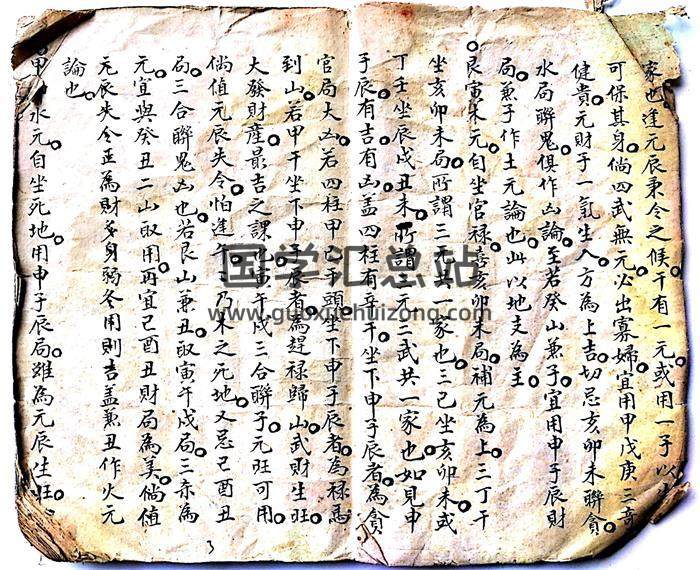 家也逢元辰秉令之候干有一元或用一子以
可保其身倘四武無元必出寡婦宜用甲戊庚三奇
健貴元財于一氣生入方為上吉切忌亥卯未聯貪
水局聯鬼俱作凶論至若癸山兼子宜用申子辰財
局兼子作土元論也此以地支為主
艮寅朱元自坐官禄喜亥卯未局補元為上三丁干
坐亥卯未局所謂三元共一家也三己坐亥卯未或
丁壬坐辰戌丑未所謂三元三武共一家也如見申
子辰有吉有凶盖四柱有辛干坐下申子辰者為貪
官局大凶若四柱甲己干頭坐下申子辰者為禄馬
到山若甲干坐下申子辰者為趕禄歸山武財生旺
大發財産最吉之課也寅午戌三合聯子元旺可用
倘值元辰失令怕逢午乃木之死地又忌己酉丑
局三合聯鬼凶也若艮山兼丑取寅午戌局三亦為
元宜與癸丑二山取用再宜己酉丑財局為美倘值
元辰失令並為財多身弱各用則吉盖兼丑作火元
論也
甲水元自坐死地用申子辰局雖為元辰生旺
3
国学汇总站
www.guoxuehuizong.com